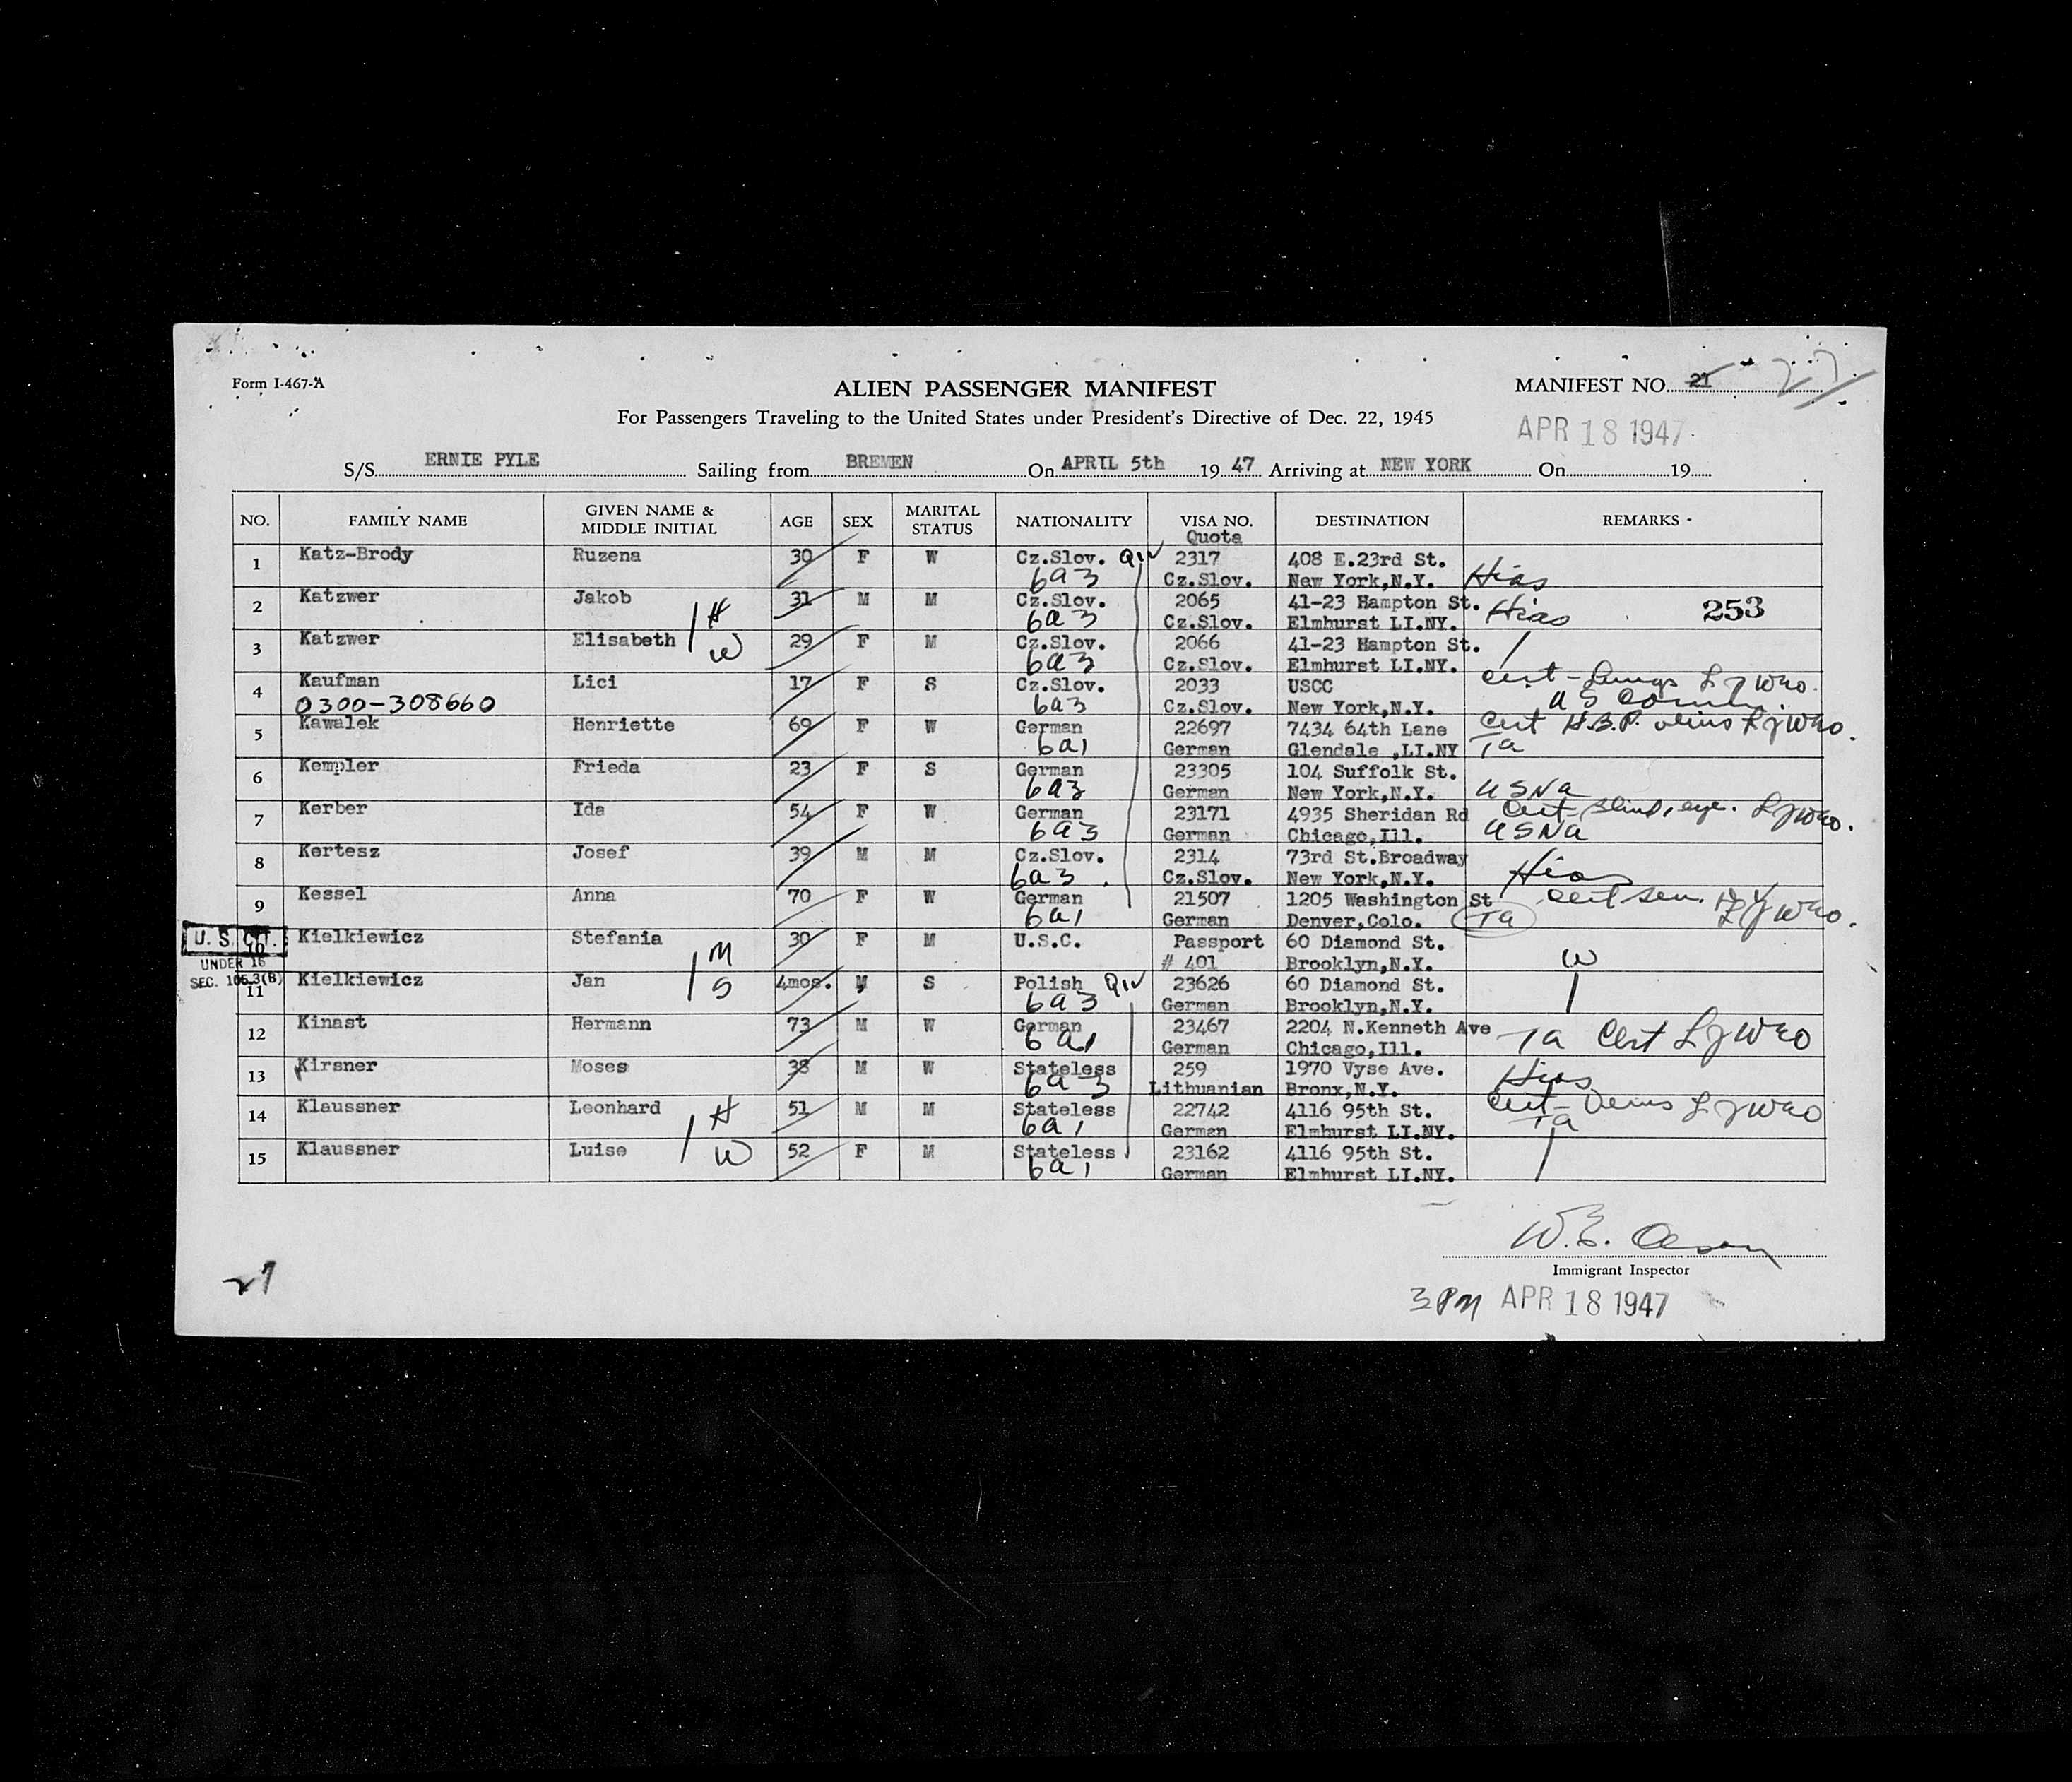 Form I-467-A
ALIEN PASSENGER MANIFEST
MANIFEST NO. 21 27
For Passengers Traveling to the United States under President's Directive of Dec. 22, 1945
APR 18 1947
S/S ERNIE PYLE Sailing from BREMEN On APRIL 5th 19 47 Arriving at NEW YORK On 19
NO. FAMILY NAME GIVEN NAME & MIDDLE INITIAL AGE SEX MARITAL STATUS NATIONALITY VISA NO. Quota DESTINATION REMARKS
1 Katz-Brody Ruzena 30 F W Cz.Slov. QIV 2317 408 E.23rd St.
6a3 Cz.Slov. New York,N.Y. Hias
2 Katzwer Jakob H 31 M M Cz.Slov. 2065 41-23 Hampton St. Hias 253
6a3 Cz.Slov. Elmhurst LI.NY.
3 Katzwer Elisabeth W 29 F M Cz.Slov. 2066 41-23 Hampton St.
6a3 Cz.Slov. Elmhurst LI.NY.
4 Kaufman Lici 17 F S Cz.Slov. 2033 USCC Cert-Lungs
0300-308660 6a3 Cz.Slov. New York,N.Y. US
5 Kawalek Henriette 69 F W German 22697 7434 64th Lane Cert H.B.P. veins
6a1 German Glendale ,LI.NY Ta
6 Kempler Frieda 23 F S German 23305 104 Suffolk St.
6a3 German New York,N.Y. USNa
7 Kerber Ida 54 F W German 23171 4935 Sheridan Rd Cert-Blind, eye.
6a3 German Chicago,Ill. USNa
8 Kertesz Josef 39 M M Cz.Slov. 2314 73rd St.Broadway
6a3 Cz.Slov. New York,N.Y. Hias
9 Kessel Anna 70 F W German 21507 1205 Washington St Cert sen.
6a1 German Denver,Colo. Ta
U. S. CIT.
UNDER 16
SEC. 106.3(B)
10 Kielkiewicz Stefania M 30 F M U.S.C. Passport 60 Diamond St.
# 401 Brooklyn,N.Y. W
11 Kielkiewicz Jan S 4mos. M S Polish QIV 23626 60 Diamond St.
6a3 German Brooklyn,N.Y.
12 Kinast Hermann 73 M W German 23467 2204 N.Kenneth Ave
6a1 German Chicago,Ill. Ta Cert
13 Kirsner Moses 38 M W Stateless 259 1970 Vyse Ave.
6a3 Lithuanian Bronx,N.Y. Hias
14 Klaussner Leonhard H 51 M M Stateless 22742 4116 95th St. Cert-Veins
6a1 German Elmhurst LI.NY. Ta
15 Klaussner Luise W 52 F M Stateless 23162 4116 95th St.
6a1 German Elmhurst LI.NY.
W.E.
Immigrant Inspector
27
3 PM APR 18 1947